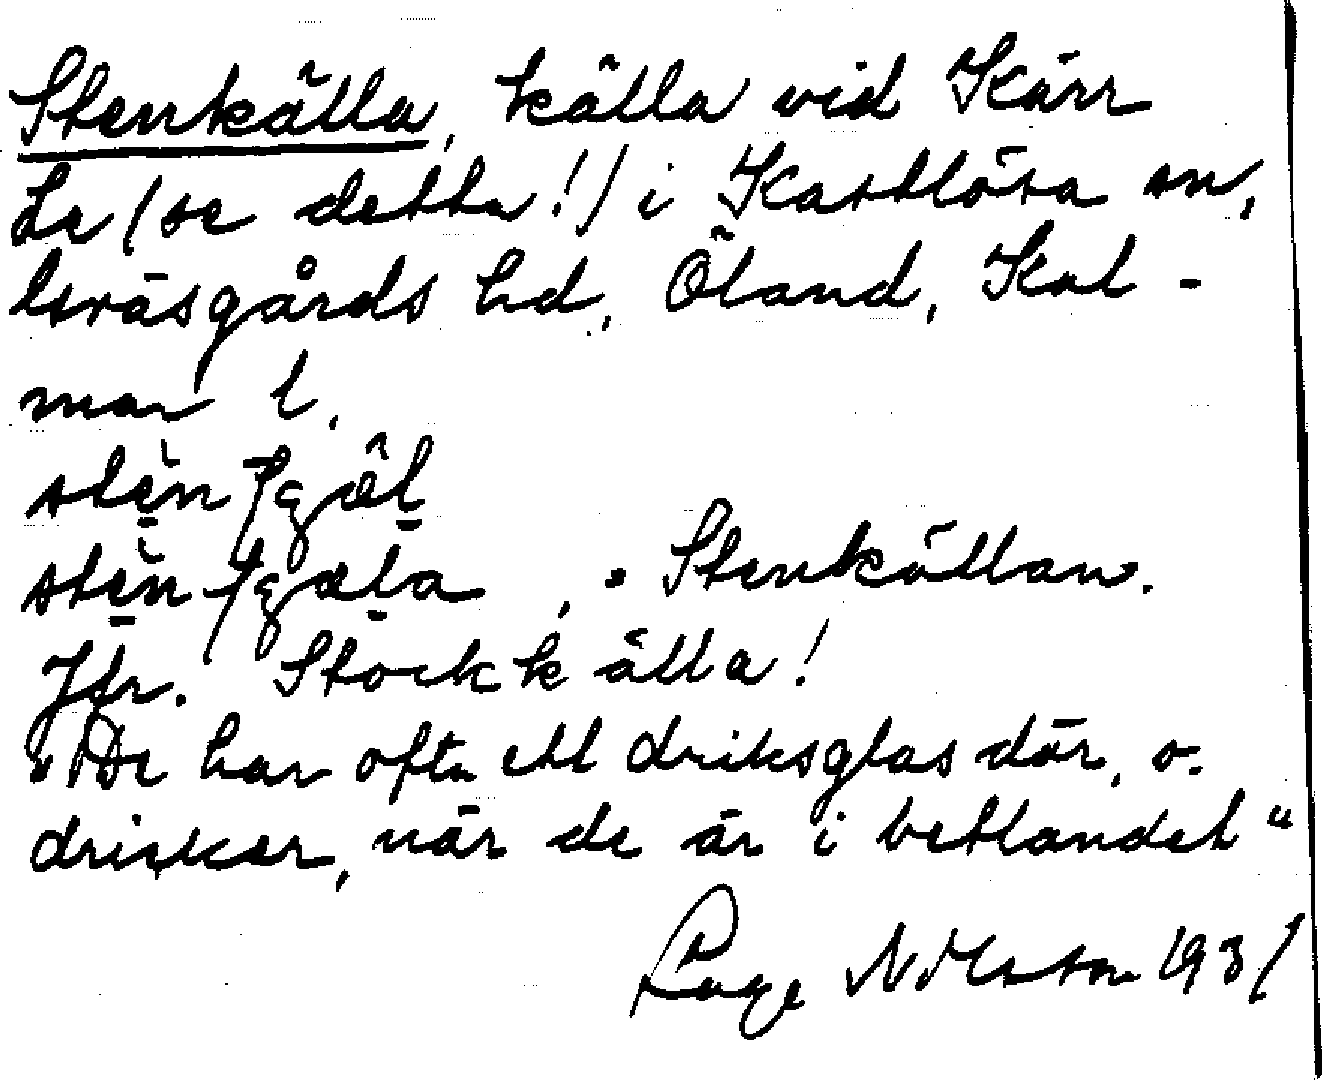 Stenkälla, källa vid Kärr
La (se detta!) i Kastlösa sn,
Gräsgårds hd, Öland, Kal-
mar l.
Stenkällan.
Jfr. Stockkälla!
"De har ofta ett driksglas där, o.
dricker, när de är i betlandet"
Nilsson 1931